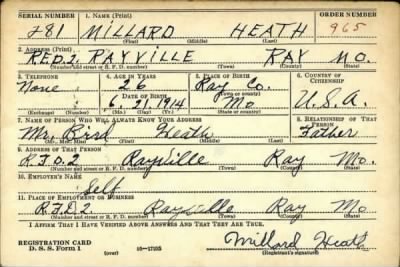 SERIAL NUMBER 1. NAME (Print) ORDER NUMBER
281 MILLARD HEATH 965
(First) (Middle) (Last)
2. ADDRESS (Print)
R.F.D.2. RAYVILLE RAY MO.
(Number and street or R. F. D. number) (Town) (County) (State)
3. TELEPHONE 4. AGE IN YEARS 5. PLACE OF BIRTH 6. COUNTRY OF CITIZENSHIP
None 2 Ray Co.
DATE OF BIRTH
6. 21. 1914 Mo U.S.A.
(Exchange) (Number) (Mo.) (Day) (Yr.) (State or country)
7. NAME OF PERSON WHO WILL ALWAYS KNOW YOUR ADDRESS 8. RELATIONSHIP OF THAT PERSON
Mr. Bird Heath Father
(Mr., Mrs., Miss) (First) (Middle) (Last)
9. ADDRESS OF THAT PERSON
R.F.D.2 Rayville Ray Mo.
(Number and street or R. F. D. number) (Town) (County) (State)
10. EMPLOYER'S NAME
Self
11. PLACE OF EMPLOYMENT OR BUSINESS
R.F.D.2. Rayville Ray Mo.
(Number and street or R. F. D. number) (Town) (County) (State)
I AFFIRM THAT I HAVE VERIFIED ABOVE ANSWERS AND THAT THEY ARE TRUE.
REGISTRATION CARD
D. S. S. Form 1 16-17105 Millard Heath
(Registrant's signature)